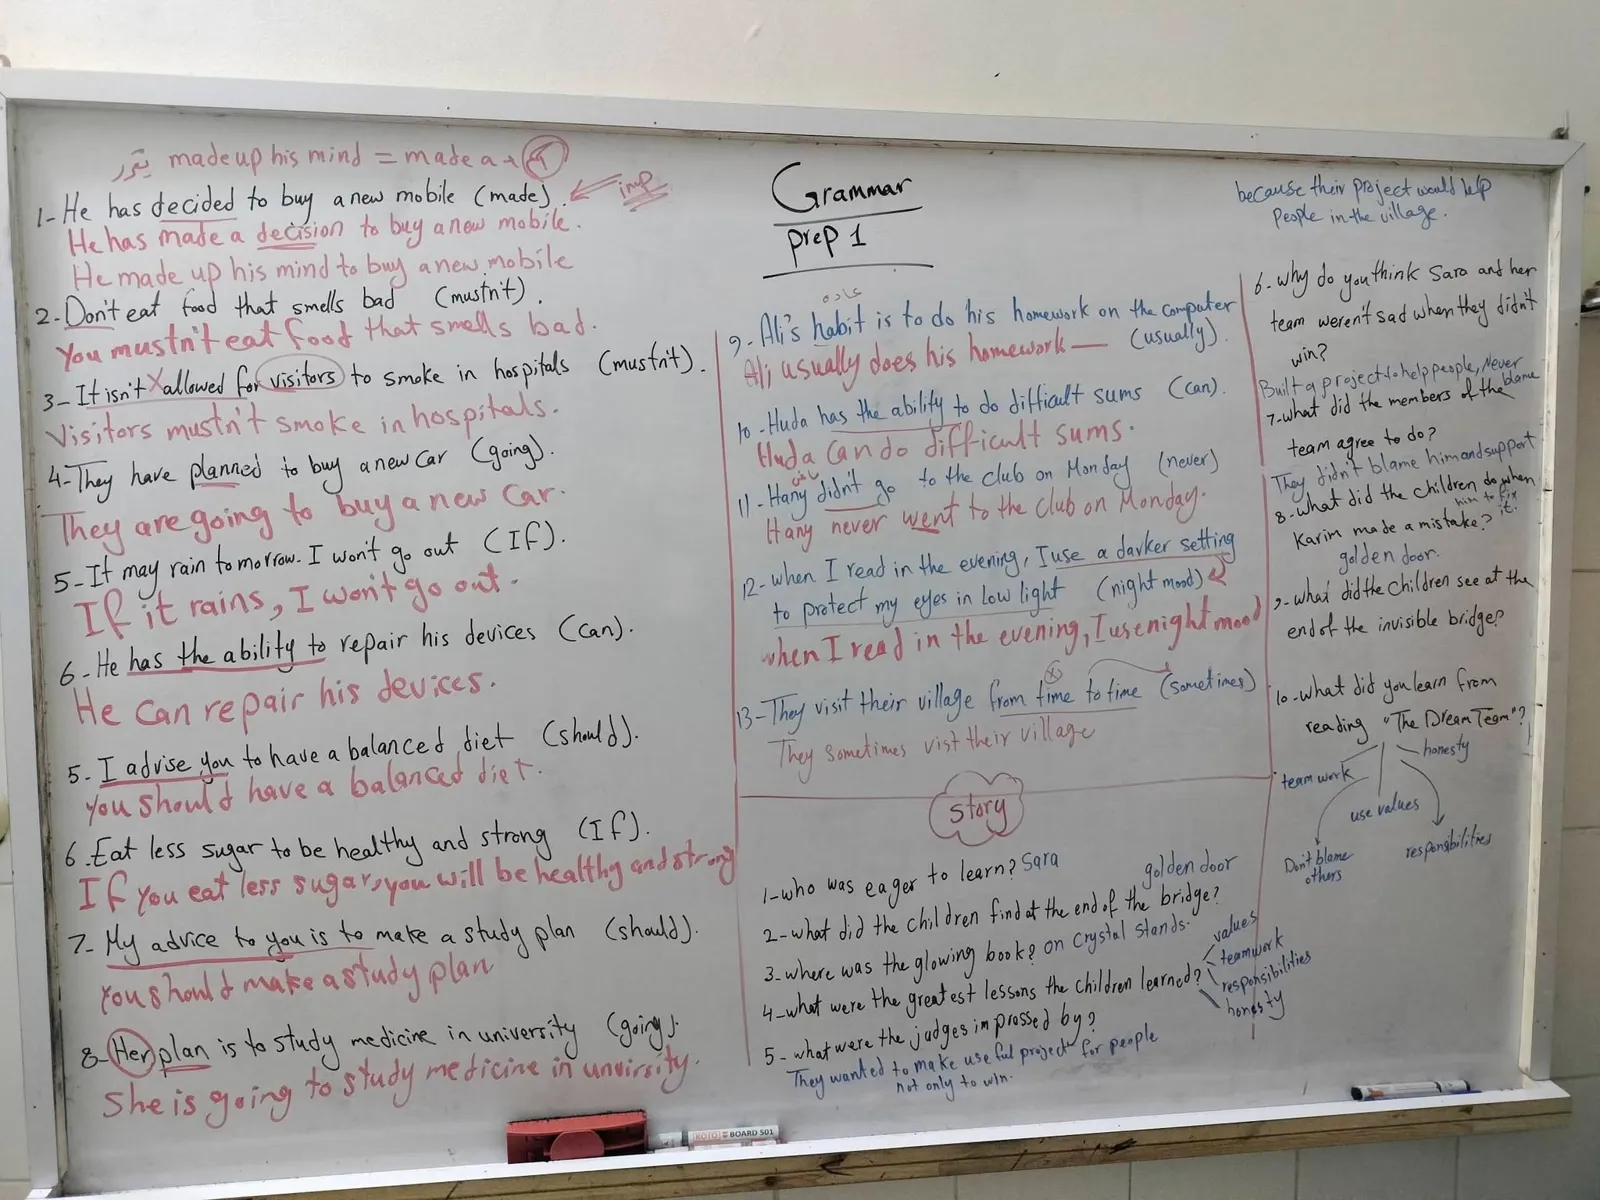 يقرر made up his mind = made a +
1- He has decided to buy a new mobile (made).
imp
He has made a decision to buy a new mobile.
He made up his mind to buy a new mobile
2- Don't eat food that smells bad (mustn't).
You mustn't eat food that smells bad.
3- It isn't allowed for visitors to smoke in hospitals (mustn't).
Visitors mustn't smoke in hospitals.
4- They have planned to buy a new car (going).
They are going to buy a new car.
5- It may rain tomorrow. I won't go out (If).
If it rains, I won't go out.
6- He has the ability to repair his devices (can).
He can repair his devices.
5- I advise you to have a balanced diet (should).
you should have a balanced diet.
6. Eat less sugar to be healthy and strong (If).
If you eat less sugar, you will be healthy and strong
7- My advice to you is to make a study plan (should).
you should make a study plan
8- Her plan is to study medicine in university (going).
She is going to study medicine in unvirsity.
Grammar
prep 1
عادة
9- Ali's habit is to do his homework on the computer
(usually).
Ali usually does his homework —
10- Huda has the ability to do difficult sums (can).
Huda can do difficult sums.
11- Hany didn't go to the club on Monday (never)
Hany never went to the club on Monday.
12- when I read in the evening, I use a darker setting
to protect my eyes in low light (night mood)
when I read in the evening, I use night mood
13- They visit their village from time to time (sometimes)
They sometimes vist their village
Story
1- who was eager to learn? Sara
golden door
2- what did the children find at the end of the bridge?
3- where was the glowing book? on crystal stands.
4- what were the greatest lessons the children learned?
values
teamwork
responsibilities
honesty
5- what were the judges impressed by?
They wanted to make useful project for people
not only to win.
because their project would help
people in the village.
6- why do you think Sara and her
team weren't sad when they didn't
win?
Built a project to help people, Never
blame
7- what did the members of the
team agree to do?
They didn't blame him and support
him to fix
it.
8- what did the children do when
Karim made a mistake?
golden door.
9- what did the children see at the
end of the invisible bridge?
10- what did you learn from
reading "The Dream Team"?
honesty
team work
use values
Don't blame
others
responsibilities
KOTO BOARD 501